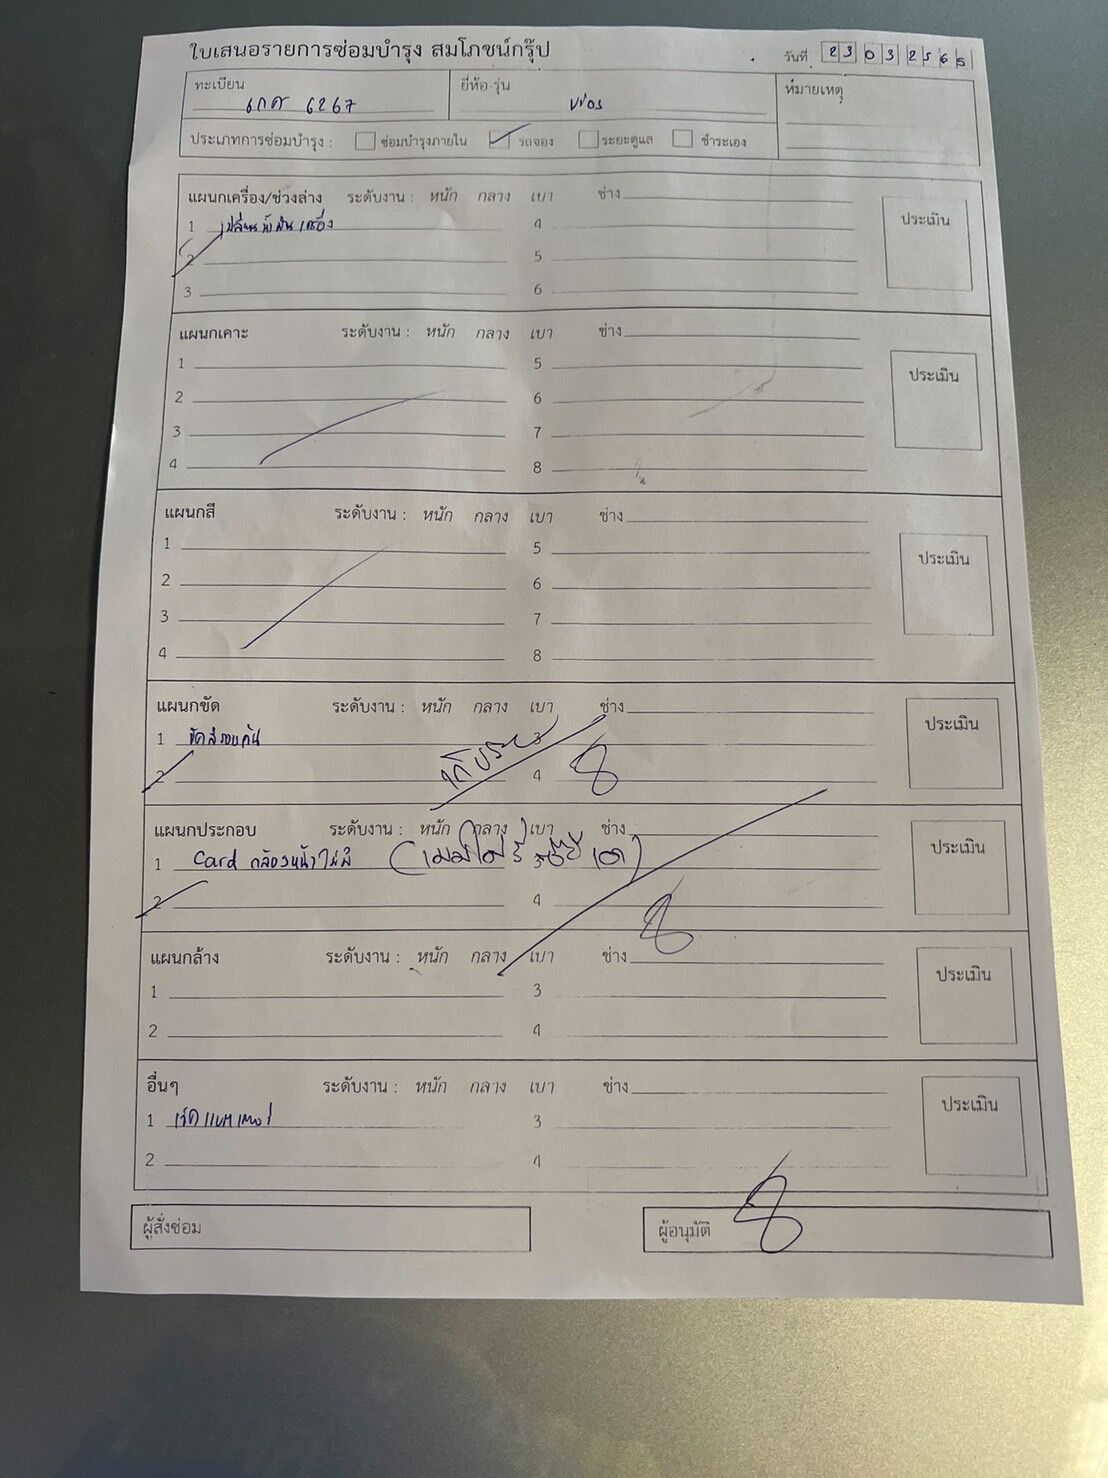 ใบเสนอรายการซ่อมบำรุง สมโภชน์กรุ๊ป
วันที่ 23032565
ทะเบียน 6267
ยี่ห้อ-รุ่น vios
หมายเหตุ
ประเภทการซ่อมบำรุง : ซ่อมบำรุงภายใน รถจอง ระยะดูแล ชำระเอง
แผนกเครื่อง/ช่วงล่าง ระดับงาน : หนัก กลาง เบา ช่าง ประเมิน
1 เปลี่ยน เครื่อง 4
2 5
3 6
แผนกเคาะ ระดับงาน : หนัก กลาง เบา ช่าง ประเมิน
1 5
2 6
3 7
4 8
แผนกสี ระดับงาน : หนัก กลาง เบา ช่าง ประเมิน
1 5
2 6
3 7
4 8
แผนกขัด ระดับงาน : หนัก กลาง เบา ช่าง ประเมิน
1 ขัดสีรอบคัน 3
2 4
แผนกประกอบ ระดับงาน : หนัก กลาง เบา ช่าง ประเมิน
1 Card กล้องหน้าไม่มี 3
2 4
แผนกล้าง ระดับงาน : หนัก กลาง เบา ช่าง ประเมิน
1 3
2 4
อื่นๆ ระดับงาน : หนัก กลาง เบา ช่าง ประเมิน
1 เช็คแบตเตอรี่ 3
2 4
ผู้สั่งซ่อม
ผู้อนุมัติ